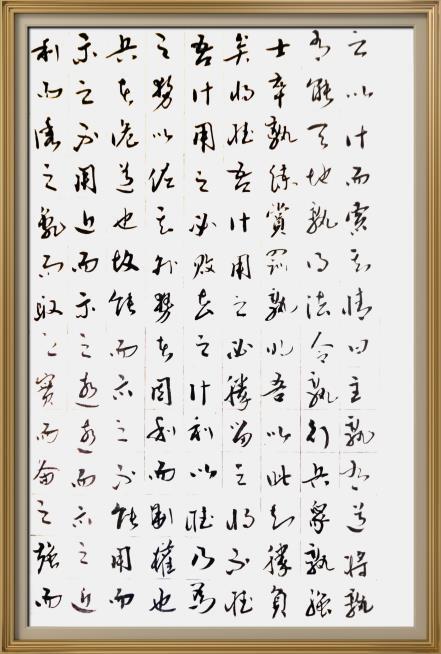 之以計而索其情曰主孰有道將孰
有能天地孰得法令孰行兵眾孰強
士卒孰練賞罰孰明吾以此知勝負
矣將聽吾計用之必勝留之將不聽
吾計用之必敗去之計利以聽乃為
之勢以佐其外勢者因利而制權也
兵者詭道也故能而示之不能用而
示之不用近而示之遠遠而示之近
利而誘之亂而取之實而備之強而